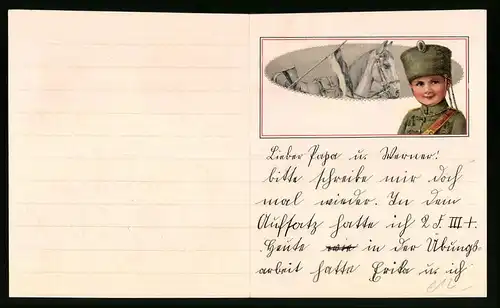 Lieber Papa u. Werner!
bitte schreibe mir doch
mal wieder. In dem
Aufsatz hatte ich 2 F. III+.
Heute in der Übungs-
arbeit hatte Erika u ich